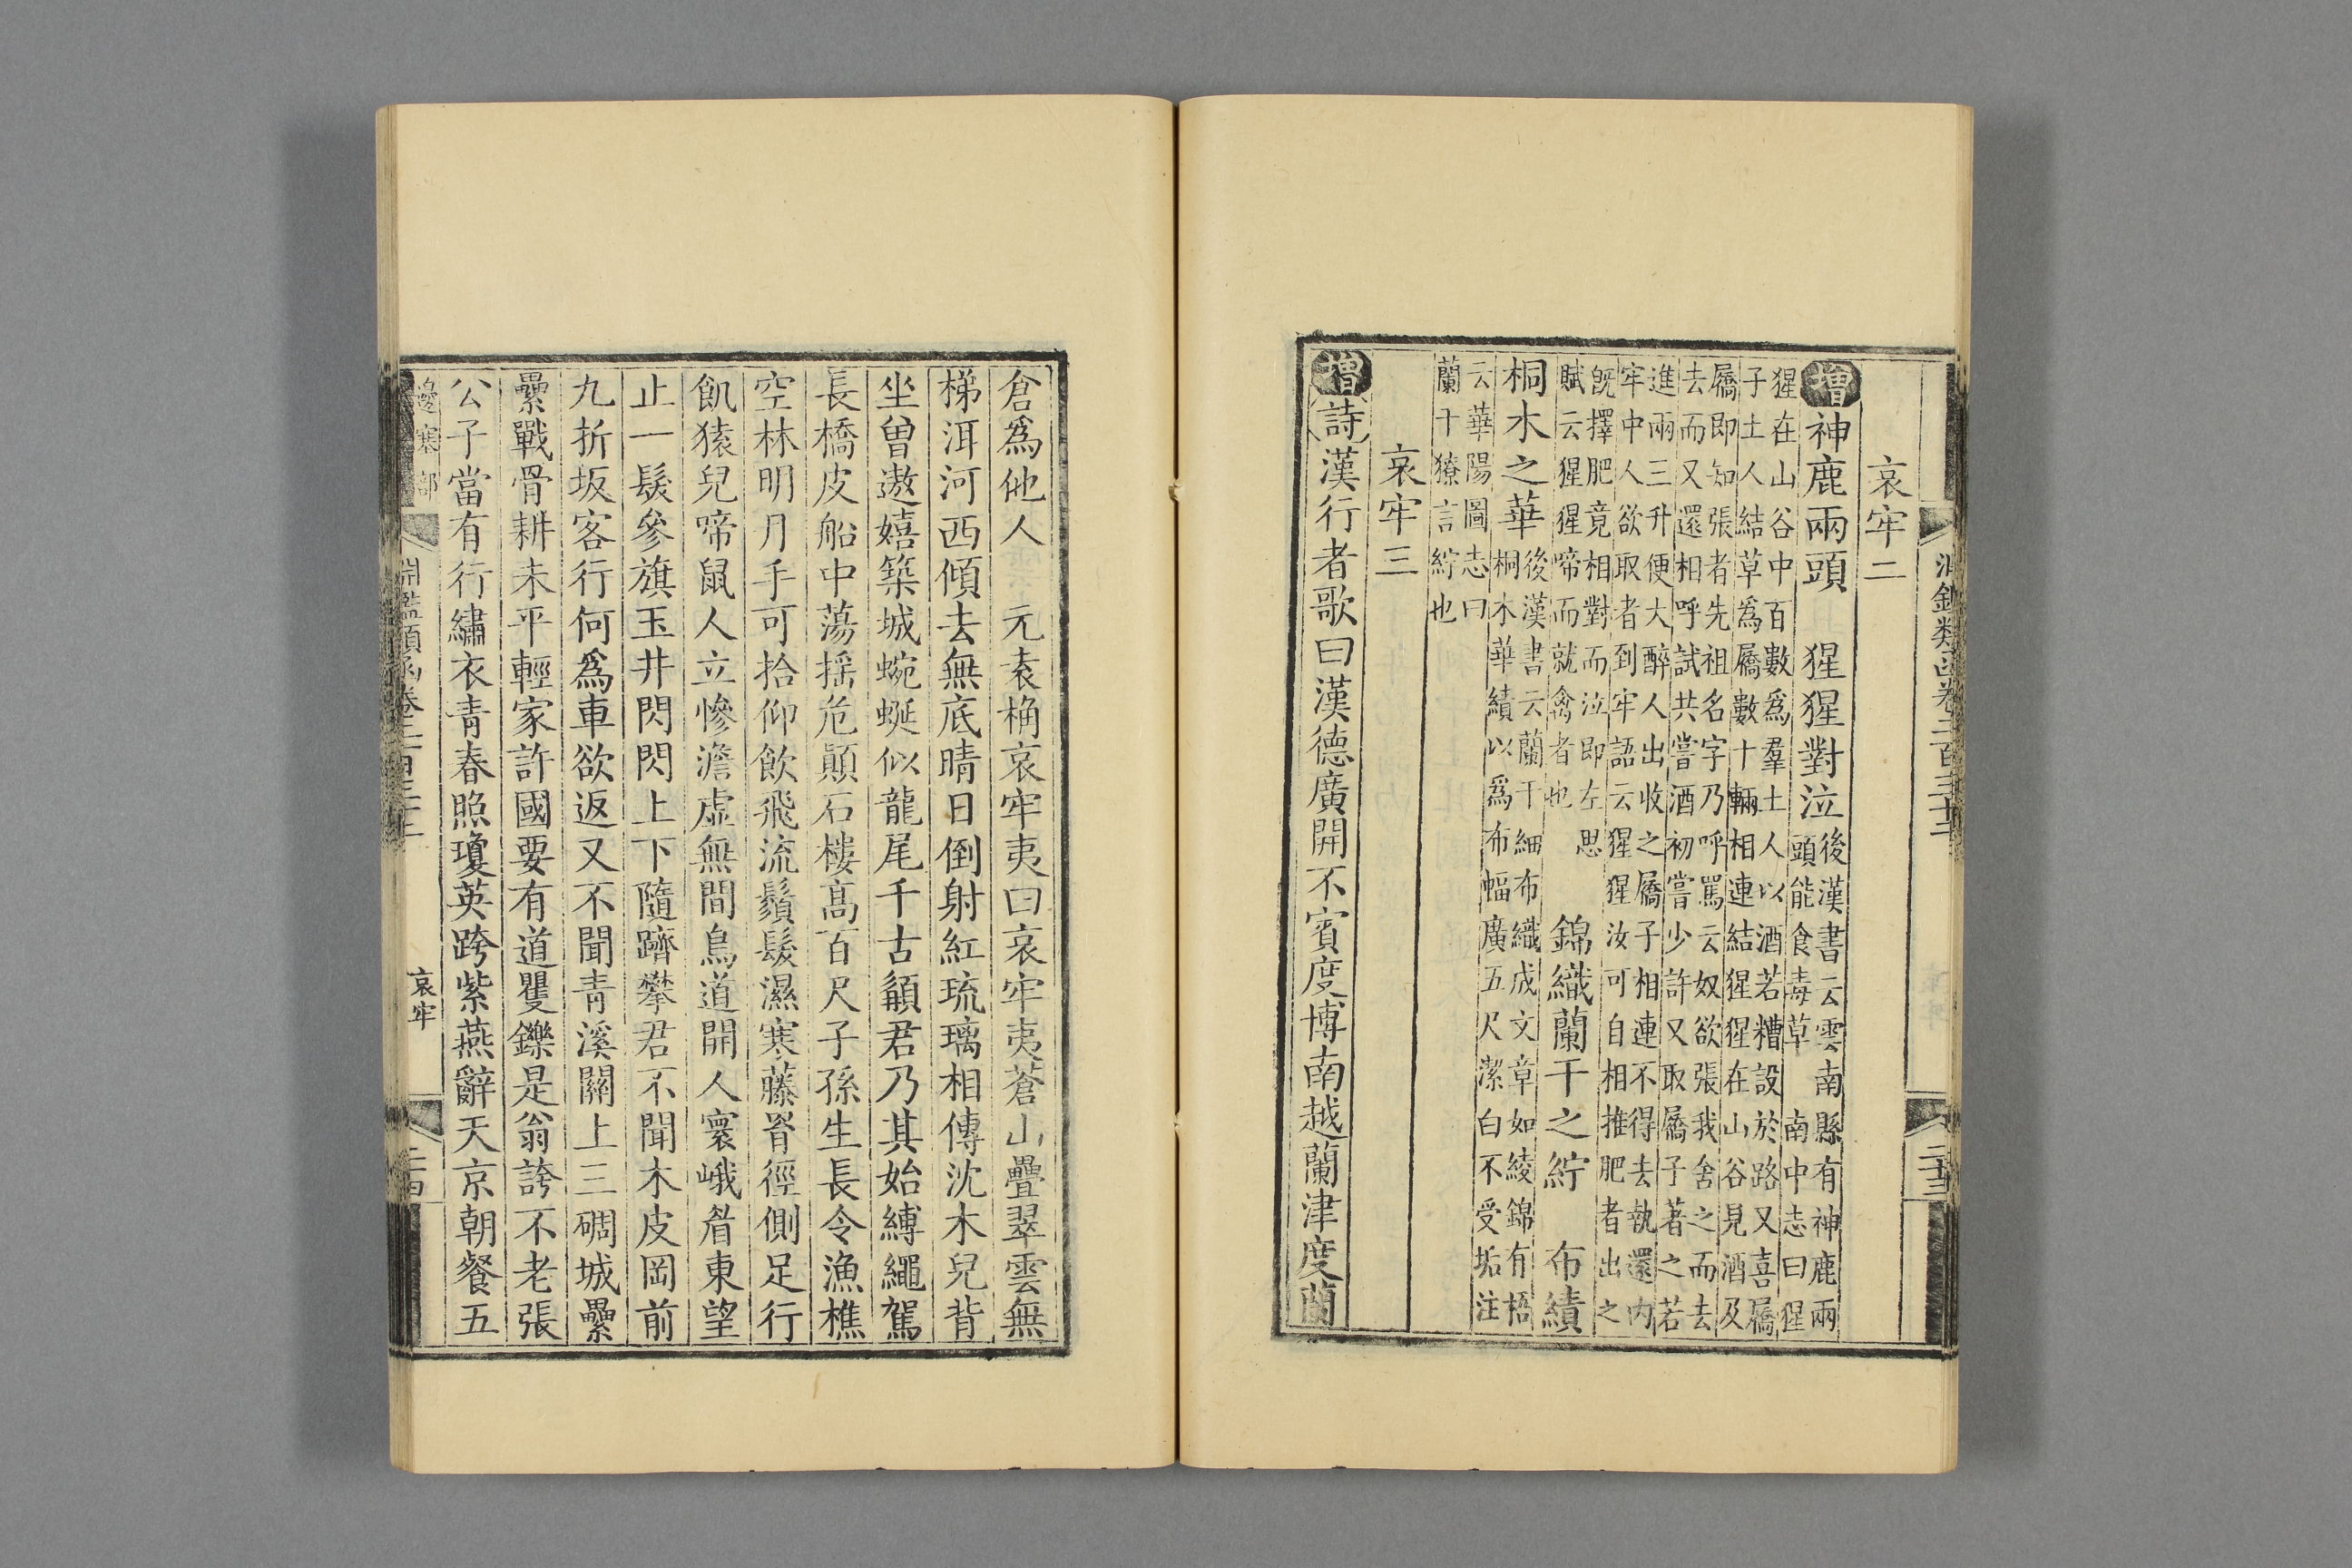 淵鑑類函卷二百三十二 二十三
哀牢二
增神鹿兩頭 猩猩對泣
後漢書云雲南縣有神鹿兩
頭能食毒草 南中志曰猩
猩在山谷中百數為羣土人以酒若糟設於路又喜屩
子土人結草為屩數十輛相連結猩猩在山谷見酒及
屩即知張者先祖名字乃呼駡云奴欲張我舍之而去
去而又還相呼試共嘗酒初嘗少許又取屩子著之若
進兩三升便大醉人出收之屩子相連不得去執還內
牢中人欲取者到牢語云猩猩汝可自相推肥者出之
旣擇肥竟相對而泣即左思
賦云猩猩啼而就禽者也
錦織蘭干之紵 布績
桐木之華
後漢書云蘭干細布織成文章如綾錦有梧
桐木華績以爲布幅廣五尺潔白不受垢注
云華陽圖志曰
蘭干獠言紵也
哀牢三
增詩漢行者歌曰漢德廣開不賓度博南越蘭津度蘭
倉爲他人 元袁桷哀牢夷曰哀牢夷蒼山疊翠雲無
梯洱河西傾去無底晴日倒射紅琉璃相傳沈木兒背
坐曾遨嬉築城蜿蜒似龍尾千古顓君乃其始縛繩駕
長橋皮船中蕩揺危顚石樓高百尺子孫生長令漁樵
空林明月手可拾仰飲飛流鬚髮濕寒藤胷徑側足行
飢猿兒啼鼠人立慘澹虛無間鳥道開人寰峨眉東望
止一髮參旗玉井閃閃上下隨躋攀君不聞木皮岡前
九折坂客行何爲車欲返又不聞青溪關上三碉城壘
壘戰骨耕未平輕家許國要有道矍鑠是翁誇不老張
公子當有行繡衣青春照瓊英跨紫燕辭天京朝餐五
邊塞部 淵鑑類函卷二百三十二 哀牢 二十四